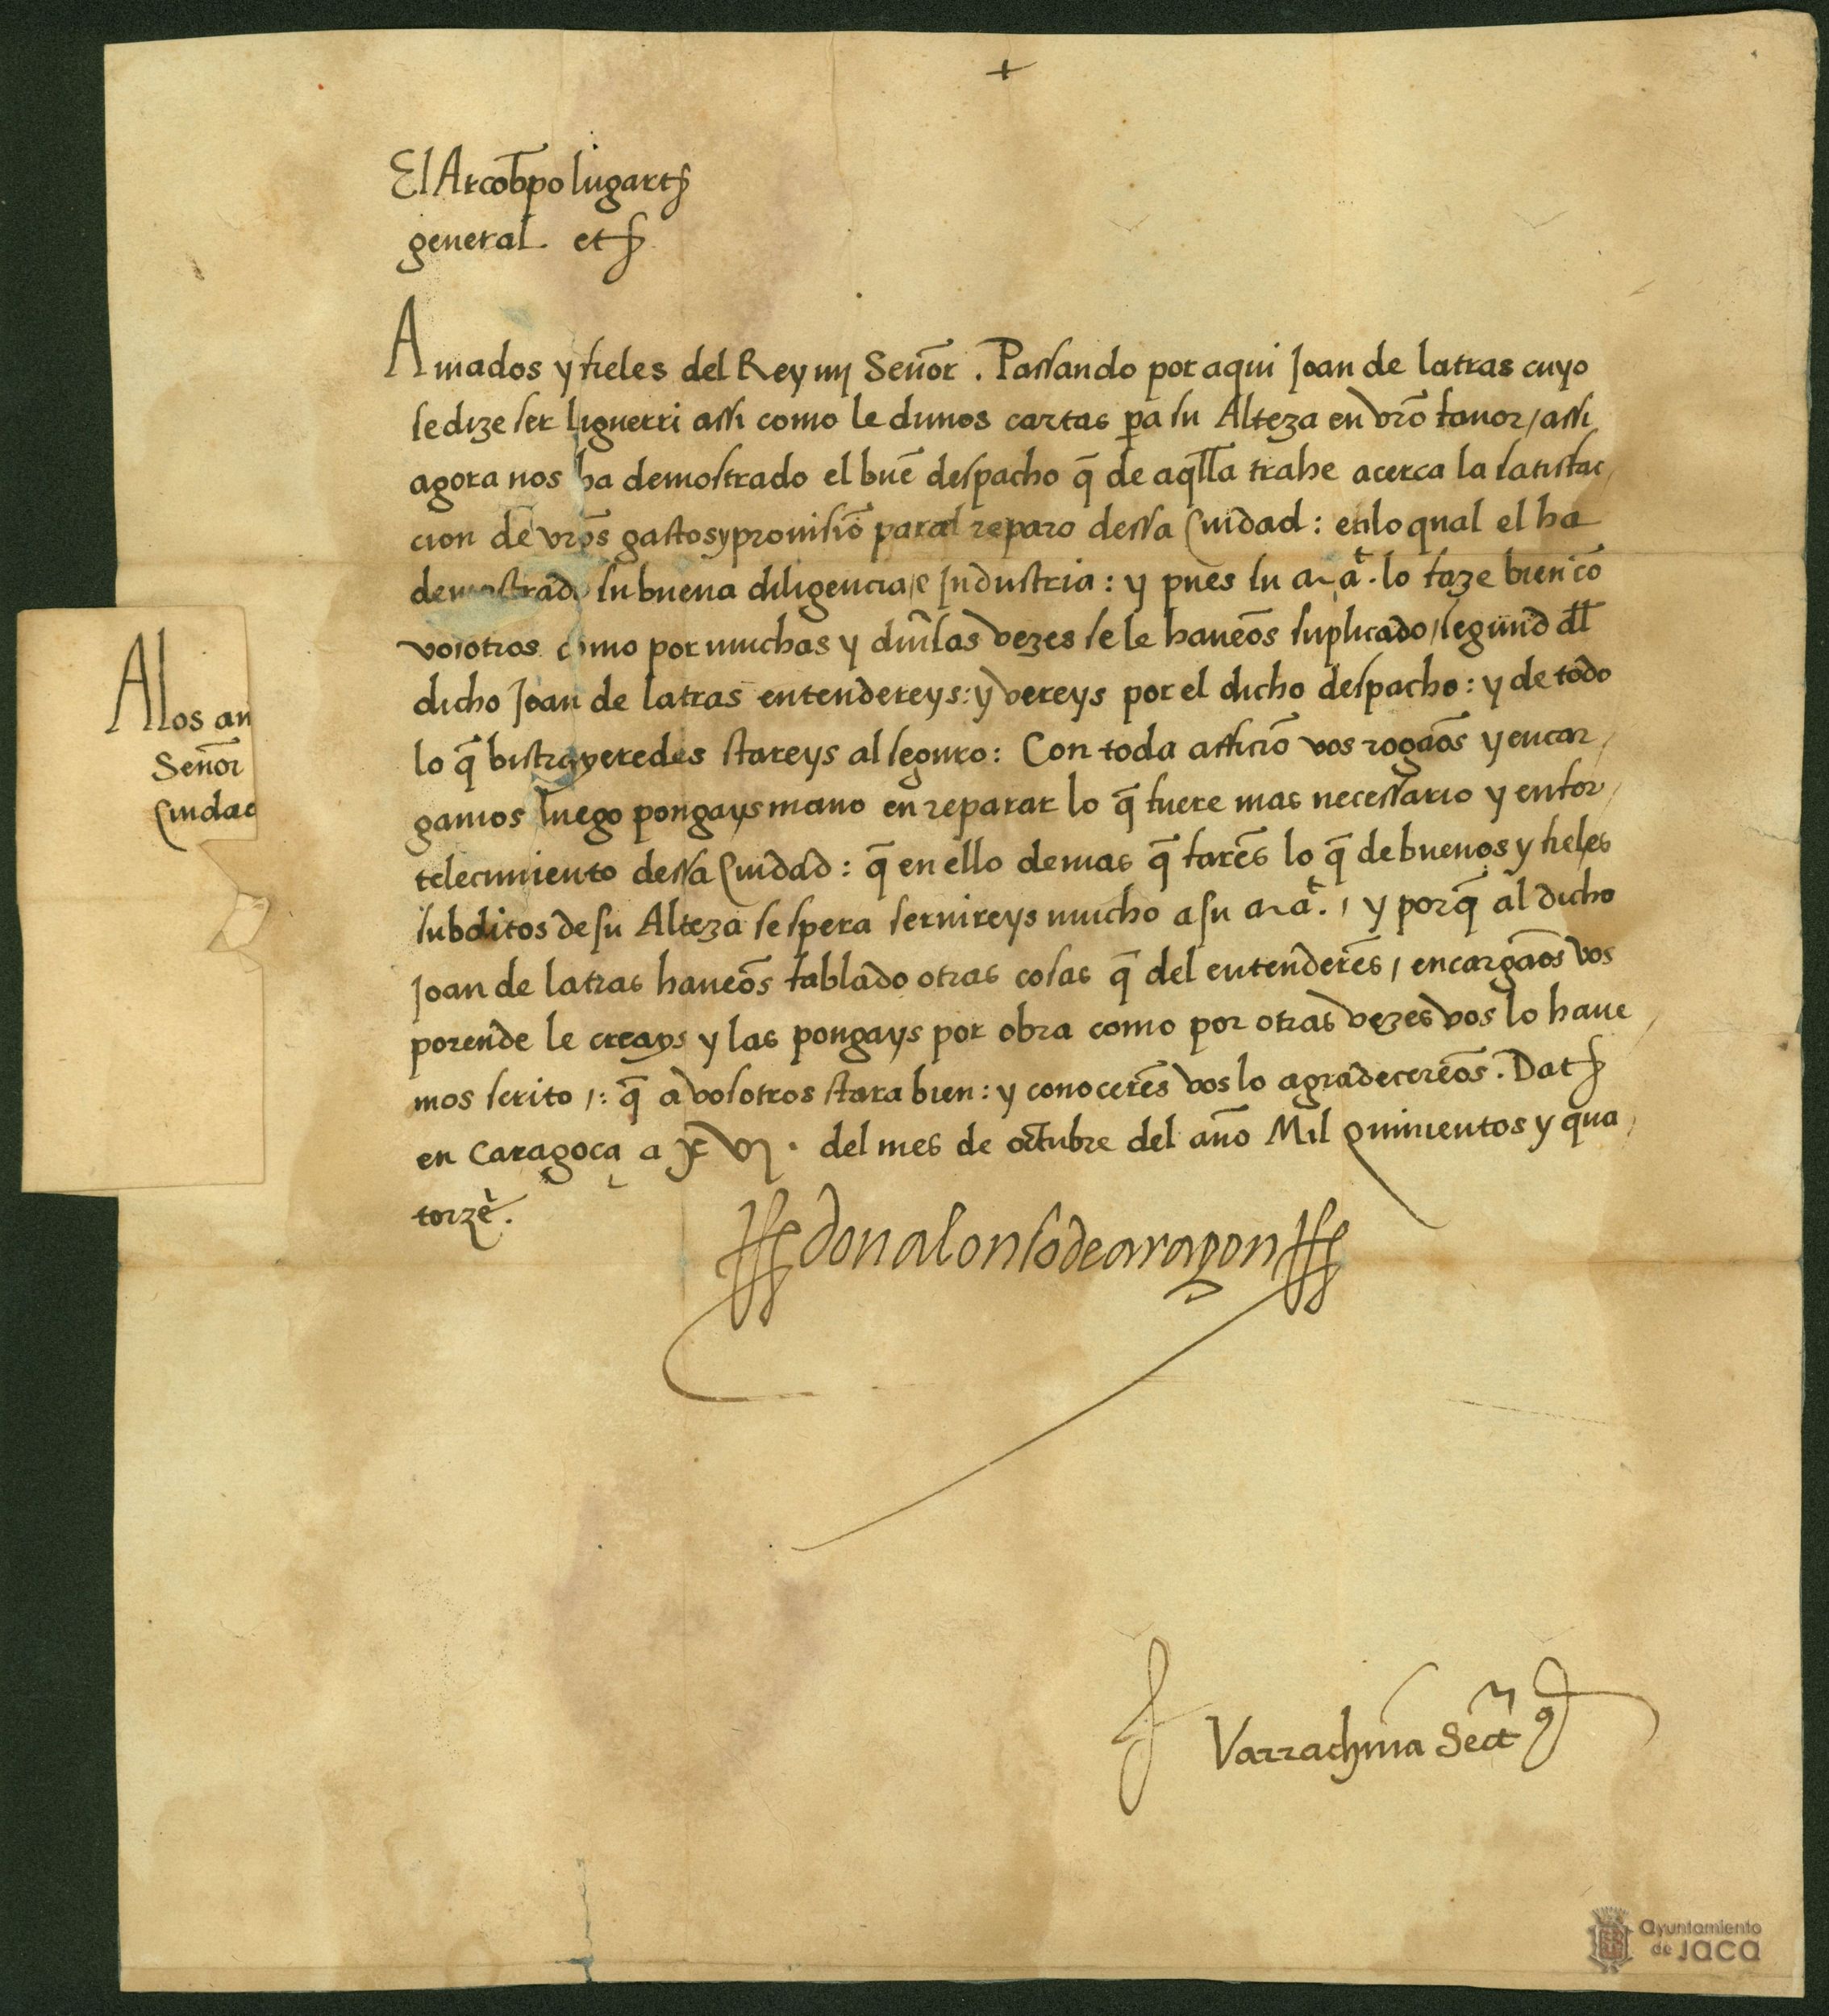 +
El Arcobpo lugart
general. etc
Amados y fieles del Rey mj Señor. Passando por aqui Joan de latras cuyo
se dize ser liguerri assi como le dimos cartas pa su Alteza en vro fauor / assi
agora nos ha demostrado el buē despacho q̄ de aqlla trahe acerca la satisfac
cion de vros gastos y prouisiō paral reparo dessa Ciudad: enlo qual el ha
demostrado su buena diligencia / e Industria: y pues su mat. lo faze bien cō
vosotros como por muchas y diusas vezes se le hauēos suplicado / segund dl
dicho Joan de latras entendereys: y vereys por el dicho despacho: y de todo
lo q̄ bistrayeredes stareys al seguro: Con toda afficiō vos rogāos y encar
gamos luego pongays mano en reparar lo q̄ fuere mas necessario y enfor
telecimiento dessa Ciudad: q̄ en ello demas q̄ farēs lo q̄ de buenos y fieles
subditos de su Alteza se spera seruireys mucho a su mat. / y porq̄ al dicho
Joan de latras hauēos fablado otras cosas q̄ del entenderēs / encargāos vos
porende le creays y las pongays por obra como por otras vezes vos lo haue
mos scrito /: q̄ a vosotros stara bien: y conocerēs vos lo agradecerēos. Dat
en Caragoça a xvj. del mes de octubre del año Mil quinientos y qua
torze.
don alonso de aragon
Varrachina Sect
A los am
Señor
Ciudad
Ayuntamiento
de Jaca